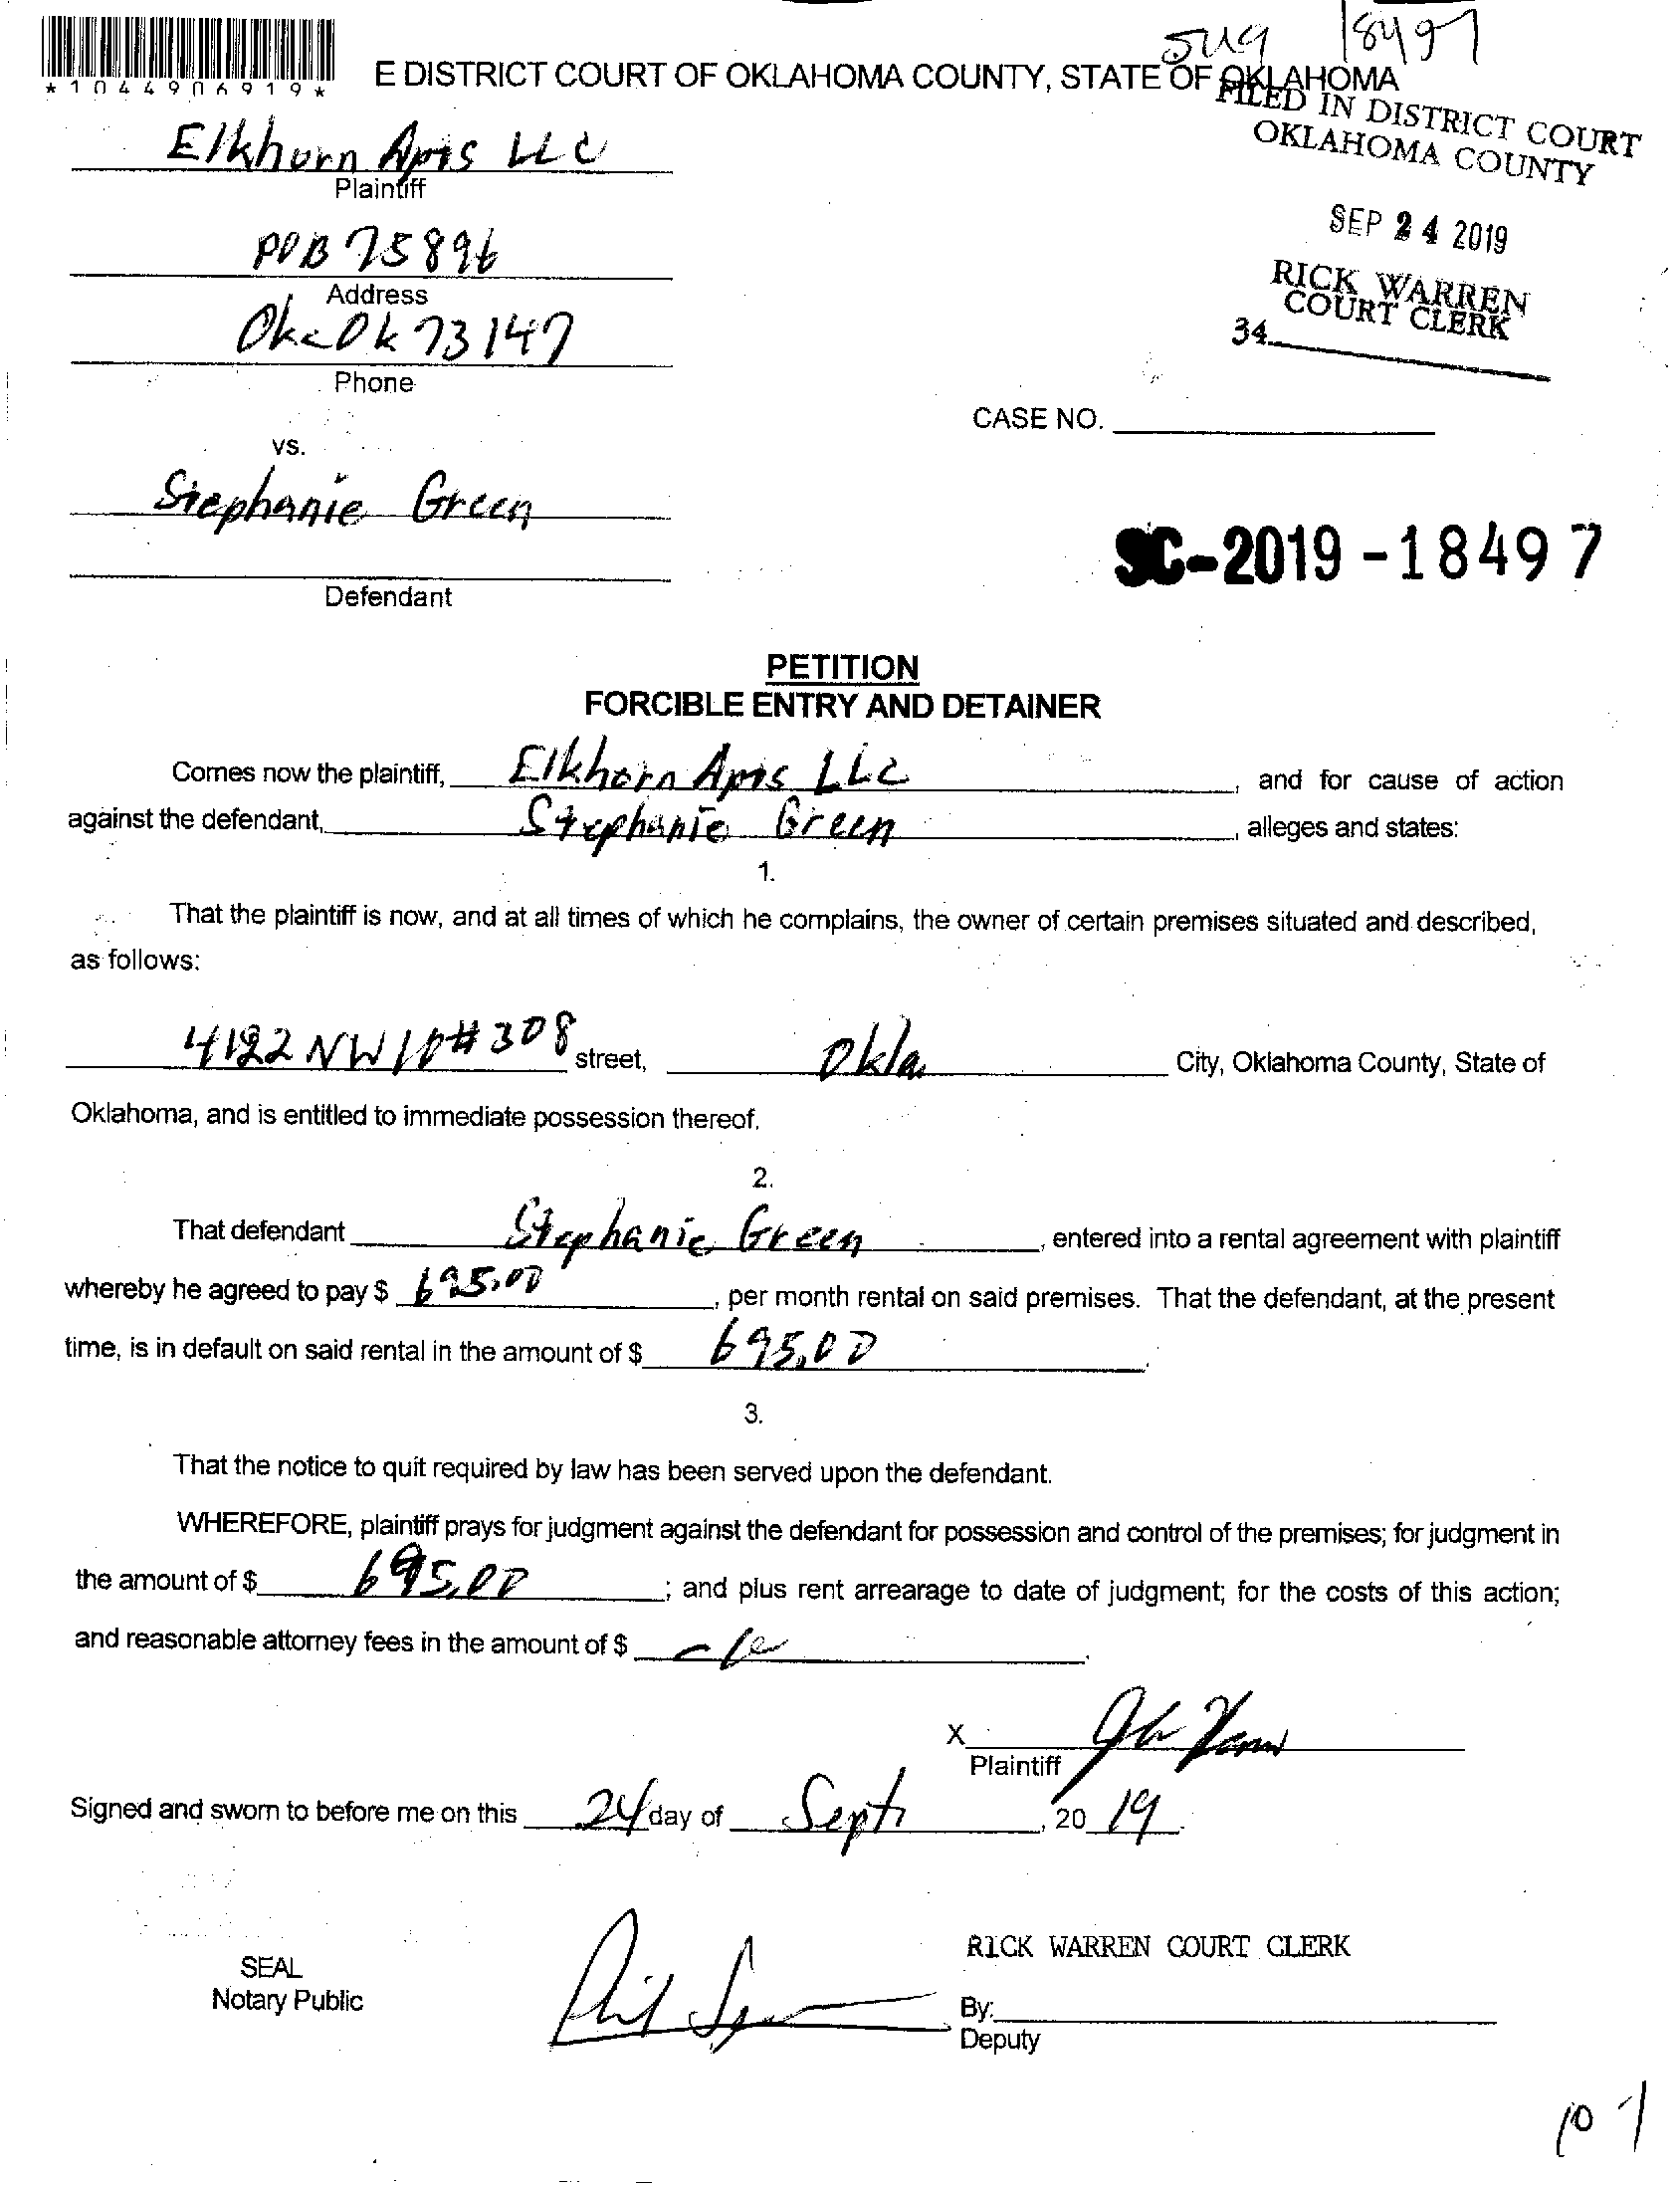 5119 18497
E DISTRICT COURT OF OKLAHOMA COUNTY, STATE OF OKLAHOMA
*1044906919*
FILED IN DISTRICT COURT
OKLAHOMA COUNTY
Elkhorn Apts LLC
Plaintiff
SEP 24 2019
POB 75896
Address
RICK WARREN
COURT CLERK
34
Okc Ok 73147
Phone
CASE NO.
vs.
Stephanie Green
SC-2019-18497
Defendant
PETITION
FORCIBLE ENTRY AND DETAINER
Comes now the plaintiff, Elkhorn Apts LLC, and for cause of action
against the defendant, Stephanie Green, alleges and states:
1.
That the plaintiff is now, and at all times of which he complains, the owner of certain premises situated and described,
as follows:
4122 NW 10 # 308 street, Okla. City, Oklahoma County, State of
Oklahoma, and is entitled to immediate possession thereof.
2.
That defendant Stephanie Green, entered into a rental agreement with plaintiff
whereby he agreed to pay $ 695.00, per month rental on said premises. That the defendant, at the present
time, is in default on said rental in the amount of $ 695.00.
3.
That the notice to quit required by law has been served upon the defendant.
WHEREFORE, plaintiff prays for judgment against the defendant for possession and control of the premises; for judgment in
the amount of $ 695.00; and plus rent arrearage to date of judgment; for the costs of this action;
and reasonable attorney fees in the amount of $
X
Plaintiff
Signed and sworn to before me on this 24 day of Sept, 20 19.
RICK WARREN COURT CLERK
SEAL
Notary Public
By:
Deputy